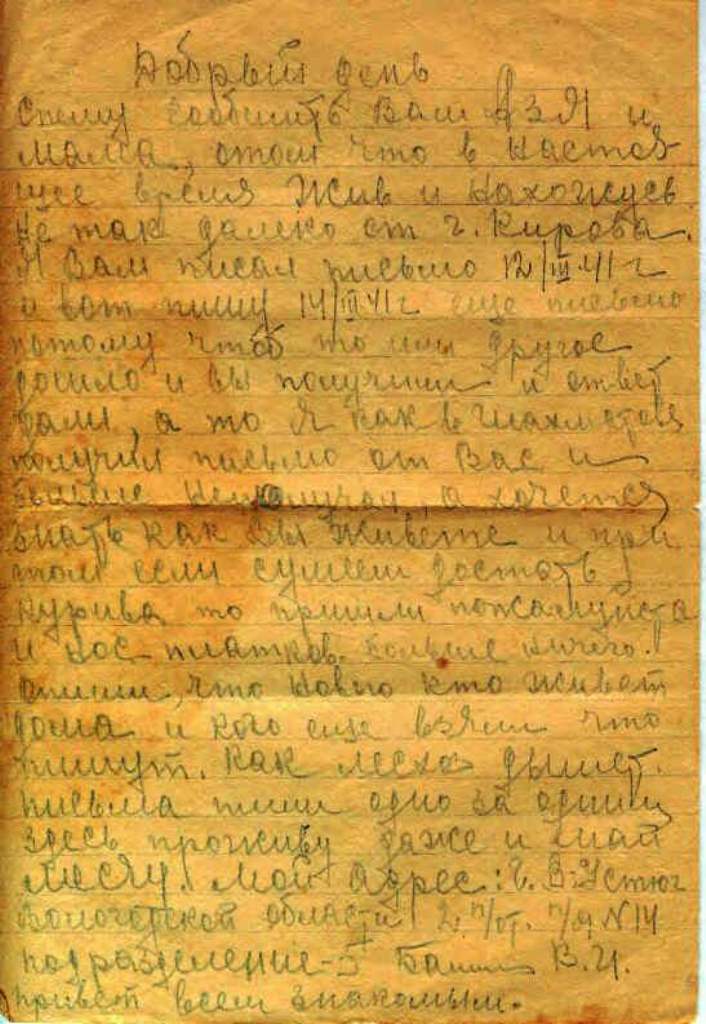 Добрый день
Спешу сообщить Вам Азя и
мама, отом что в настоя-
щее время жив и нахожусь
не так далеко от г. Кирова.
Я Вам писал письмо 12/III-41 г
а вот пишу 14/III 41 г. еще письмо
потому чтоб то или другое
дошло и вы получили и ответ
дали, а то я как в
получил письмо от Вас и
больше неполучал, а хочется
знать как Вы живете и при
том если сумеем достать
курива то пришли пожалуйста
и нос. платков. больше ничего.
опиши, что нового кто живет
дома и кого еще взяли что
пишут. Как дышет.
письма пиши одно за одним
здесь проживу даже и май
месяц. Мой адрес: г. В-Устюг
Вологодской области 2 п/от. п/я N 14
подразделение-5 В. И.
привет всем знакомым.